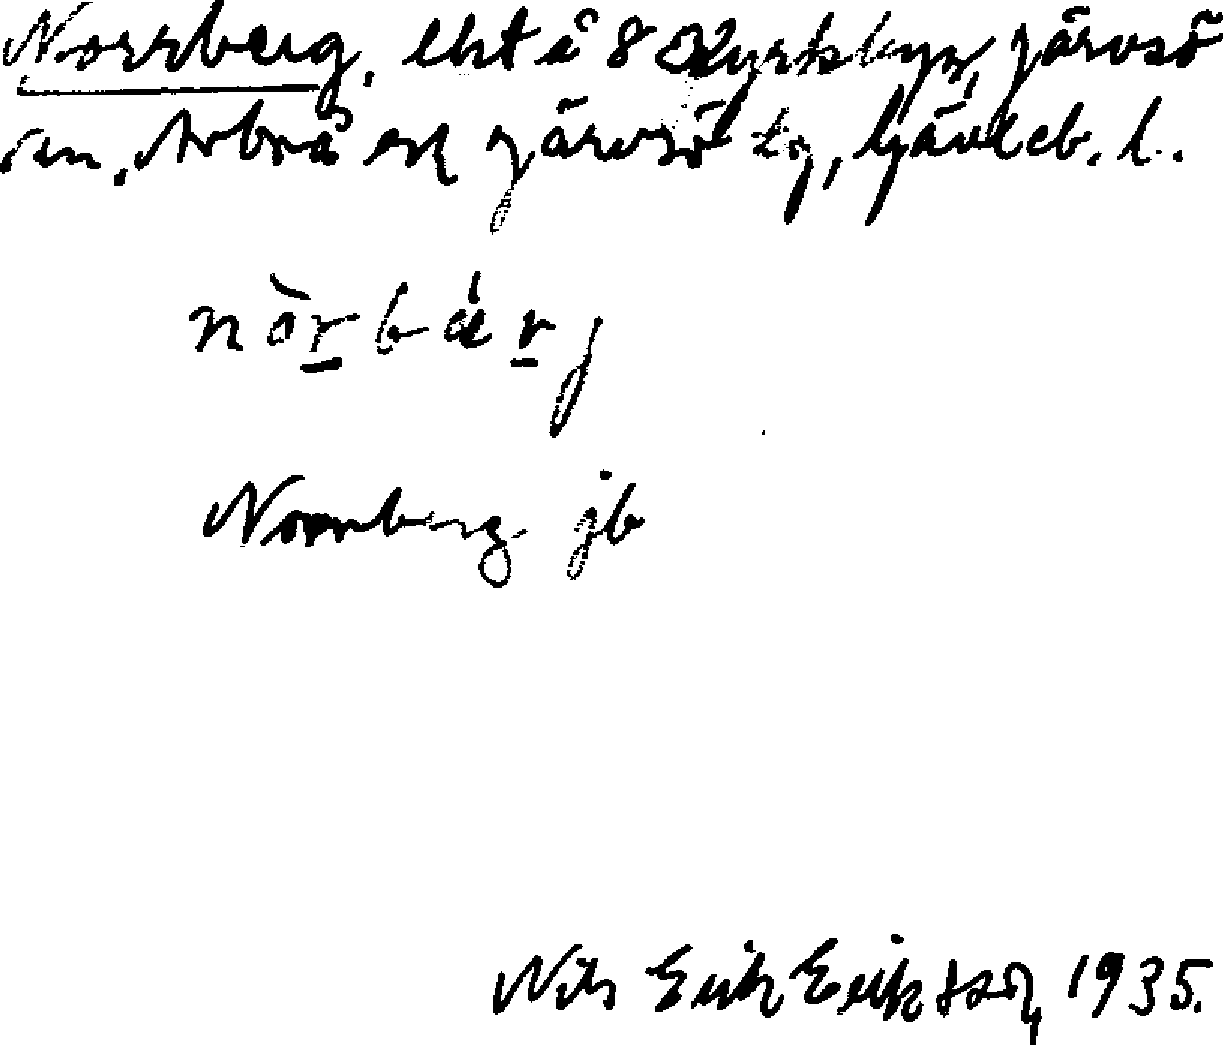 Norrberg, lht å 8 Kyrkbyn, Järvsö
sn, Arbrå och Järvsö tg, Gävleb. l.
nòrbǽrj
Norrberg jb
Nils Erik Eriksson, 1935.